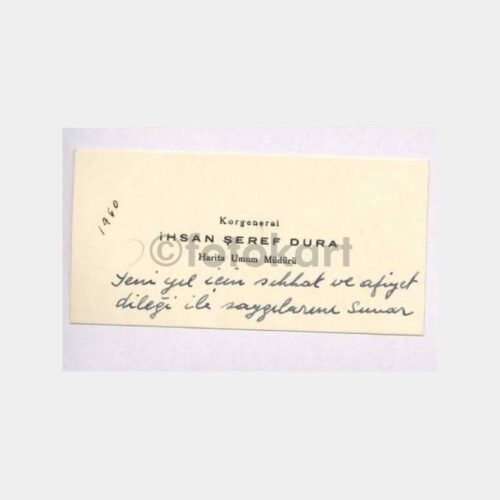 1960
Korgeneral
İHSAN ŞEREF DURA
©fotokart
Harita Umum Müdürü
Yeni yıl için sıhhat ve afiyet
dileği ile saygılarımı sunar